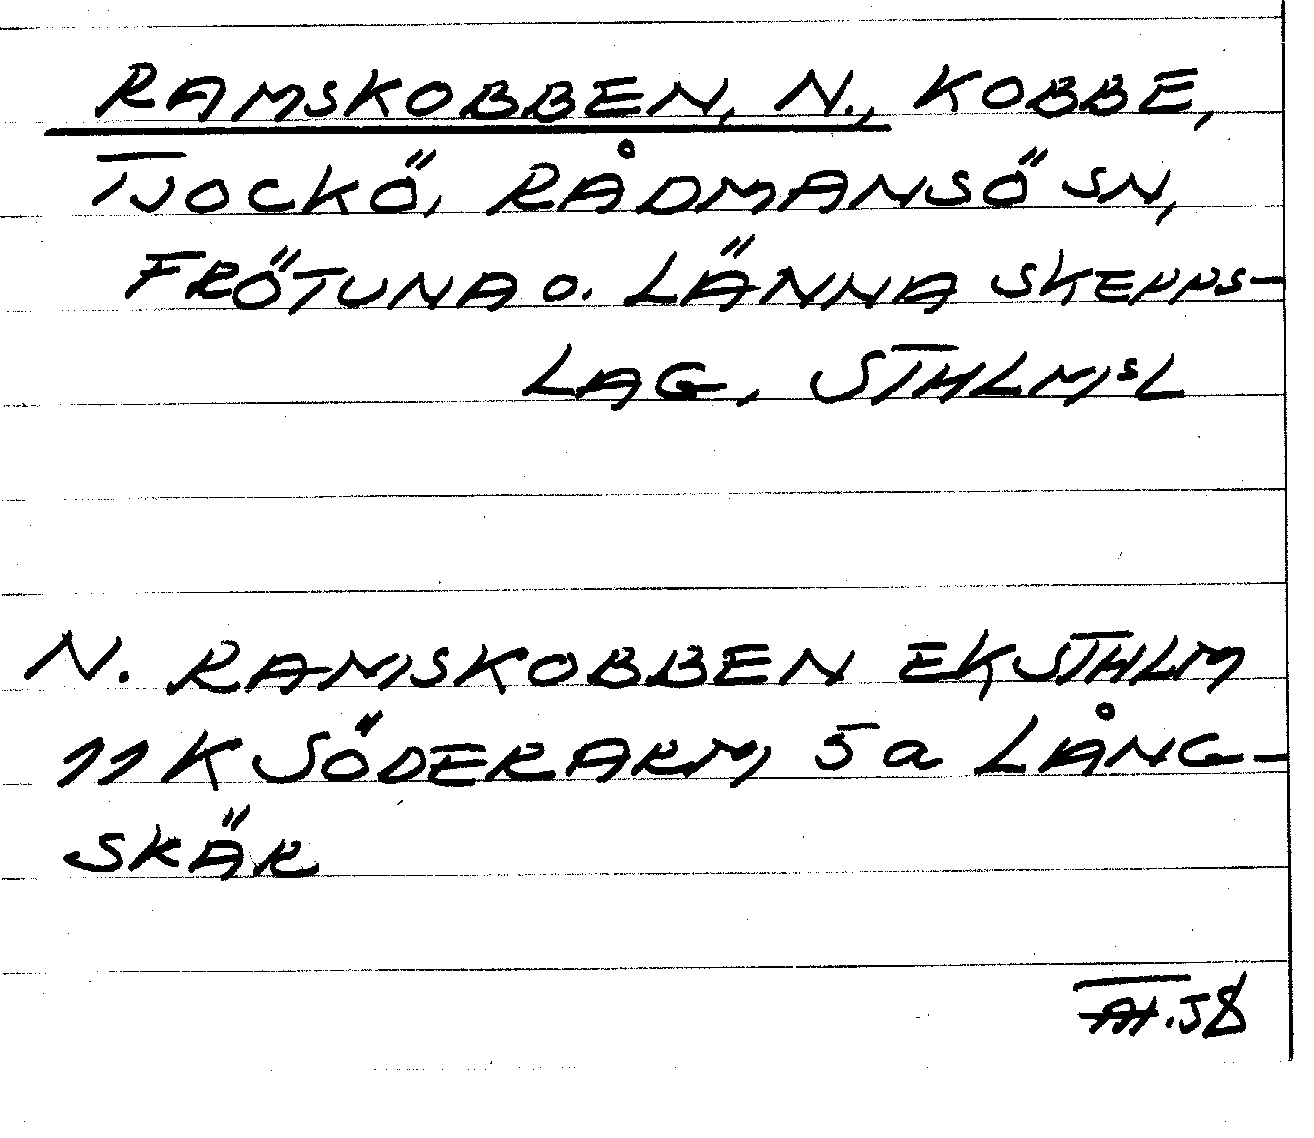 RAMSKOBBEN, N., KOBBE,
TJOCKÖ, RÅDMANSÖ SN,
FRÖTUNA O. LÄNNA SKEPPS-
LAG, STHLMSL
N. RAMSKOBBEN EKSTHLM
11K SÖDERARM, 5a LÅNG-
SKÄR